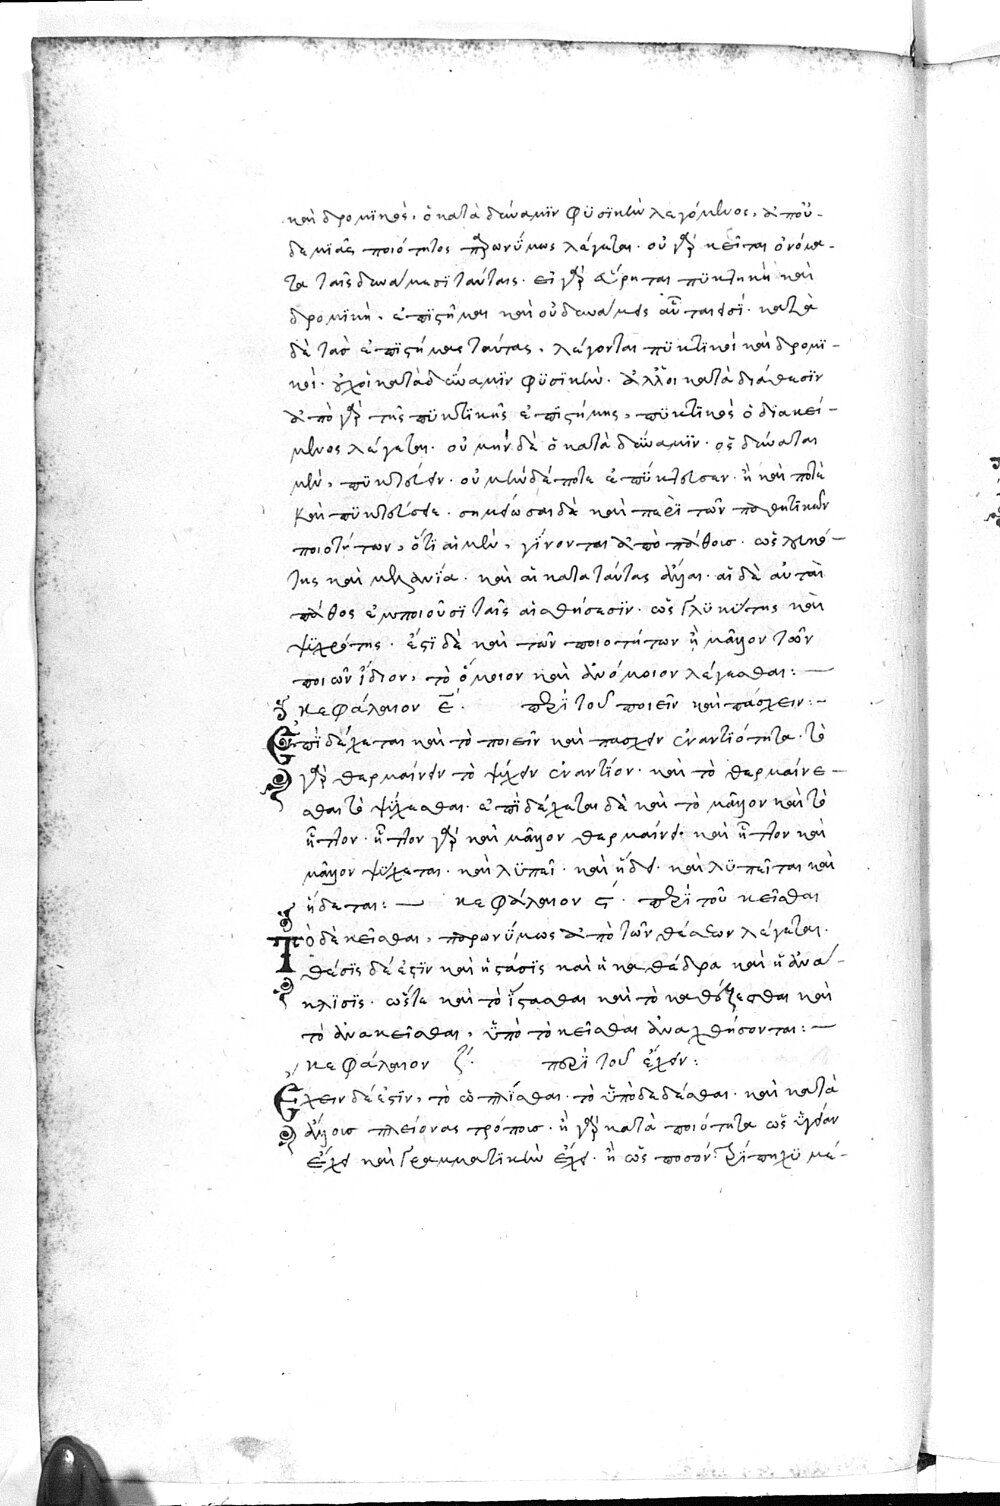 καὶ δρομϊκός, ὁ κατὰ δύναμϊν φϋσϊκὴν λεγόμενος, ἀπ' οὐ-
δεμϊᾶς ποιότητος παρωνΰμως λέγεται. οὐ γὰρ κεῖται ὀνόμα-
τα ταῖς δυνάμεσϊ ταύταις. εἰ γὰρ εὕρηται πϋκτϊκὴ καὶ
δρομϊκή, ἐπϊστῆμαι καὶ οὐ δυνάμεις αὗταί εἰσϊ. κατὰ
δὲ τὰσ ἐπϊστήμας ταύτας, λέγονται πϋκτϊκοὶ καὶ δρομϊ-
κοὶ. οὐχ οἱ κατὰ δύναμϊν φϋσϊκὴν. ἀλλ' οἱ κατὰ διάθεσϊν
ἀπὸ γὰρ τῆς πϋκτϊκῆς ἐπϊστήμης, πϋκτϊκὸς ὁ διακεί-
μενος λέγεται. οὐ μὴν δὲ ὁ κατὰ δύναμϊν. ὃς δύναται
μὲν, πϋκτεύειν. οὐ μὴν δέ ποτε ἐπΰκτευσεν. ἢ καὶ ποτὲ
καὶ πϋκτεύσει. σημείωσαι δὲ καὶ περὶ τῶν παθητικῶν
ποιοτήτων, ὅτϊ αἱ μὲν, γίνονται ἀπὸ πάθουσ. ὡς λευκό-
της καὶ μελανΐα. καὶ αἱ κατὰ ταύτας ἄλλαι. αἱ δὲ αὐταὶ
πάθος ἐμποιοῦσϊ ταῖς αἰσθήσεσϊν. ὡς γλϋκΰτης καὶ
ψϋχρότης. ἔστϊ δὲ καὶ τῶν ποιοτήτων ἢ μᾶλλον τῶν
ποιῶν ἴδιον, τὸ ὅμοιον καὶ ἀνόμοιον λέγεσθαι: —
κεφάλαιον ε΄. περὶ τοῦ ποιεῖν καὶ πάσχειν: —
Ἐπϊδέχεται καὶ τὸ ποιεῖν καὶ πασχειν ἐναντιότητα. τὸ
γὰρ θερμαίνειν τὸ ψύχειν ἐναντίον. καὶ τὸ θερμαίνε-
σθαι τὸ ψΰχεσθαι. ἐπϊδέχεται δὲ καὶ τὸ μᾶλλον καὶ τὸ
ἧττον. ἧττον γὰρ καὶ μᾶλλον θερμαίνει. καὶ ἧττον καὶ
μᾶλλον ψΰχεται. καὶ λϋπεῖ. καὶ ἥδει. καὶ λϋπεῖται καὶ
ἥδεται: — κεφάλαιον ϛ΄. περὶ τοῦ κεῖσθαι
Τὸ δὲ κεῖσθαι, παρωνΰμως ἀπὸ τῶν θέσεων λέγεται.
θέσϊς δέ ἐστϊν καὶ ἡ στάσϊς καὶ ἡ καθέδρα καὶ ἡ ἀνά-
κλϊσϊς. ὥστε καὶ τὸ ἵστασθαι καὶ τὸ καθέζεσθαι καὶ
τὸ ἀνακεῖσθαι, ὑπὸ τὸ κεῖσθαι ἀναχθήσονται: —
κεφάλαιον ζ΄. περὶ τοῦ ἔχειν:
Ἔχειν δέ ἐστϊν, τὸ ὡπλίσθαι. τὸ ὑποδεδέσθαι. καὶ κατὰ
ἄλλουσ πλείονας τρόπουσ. ἢ γὰρ κατὰ ποιότητα ὡς ὑγείαν
ἔχει καὶ γραμματϊκὴν ἔχει. ἢ ὡς ποσόν. τρίπηχϋ μέ-